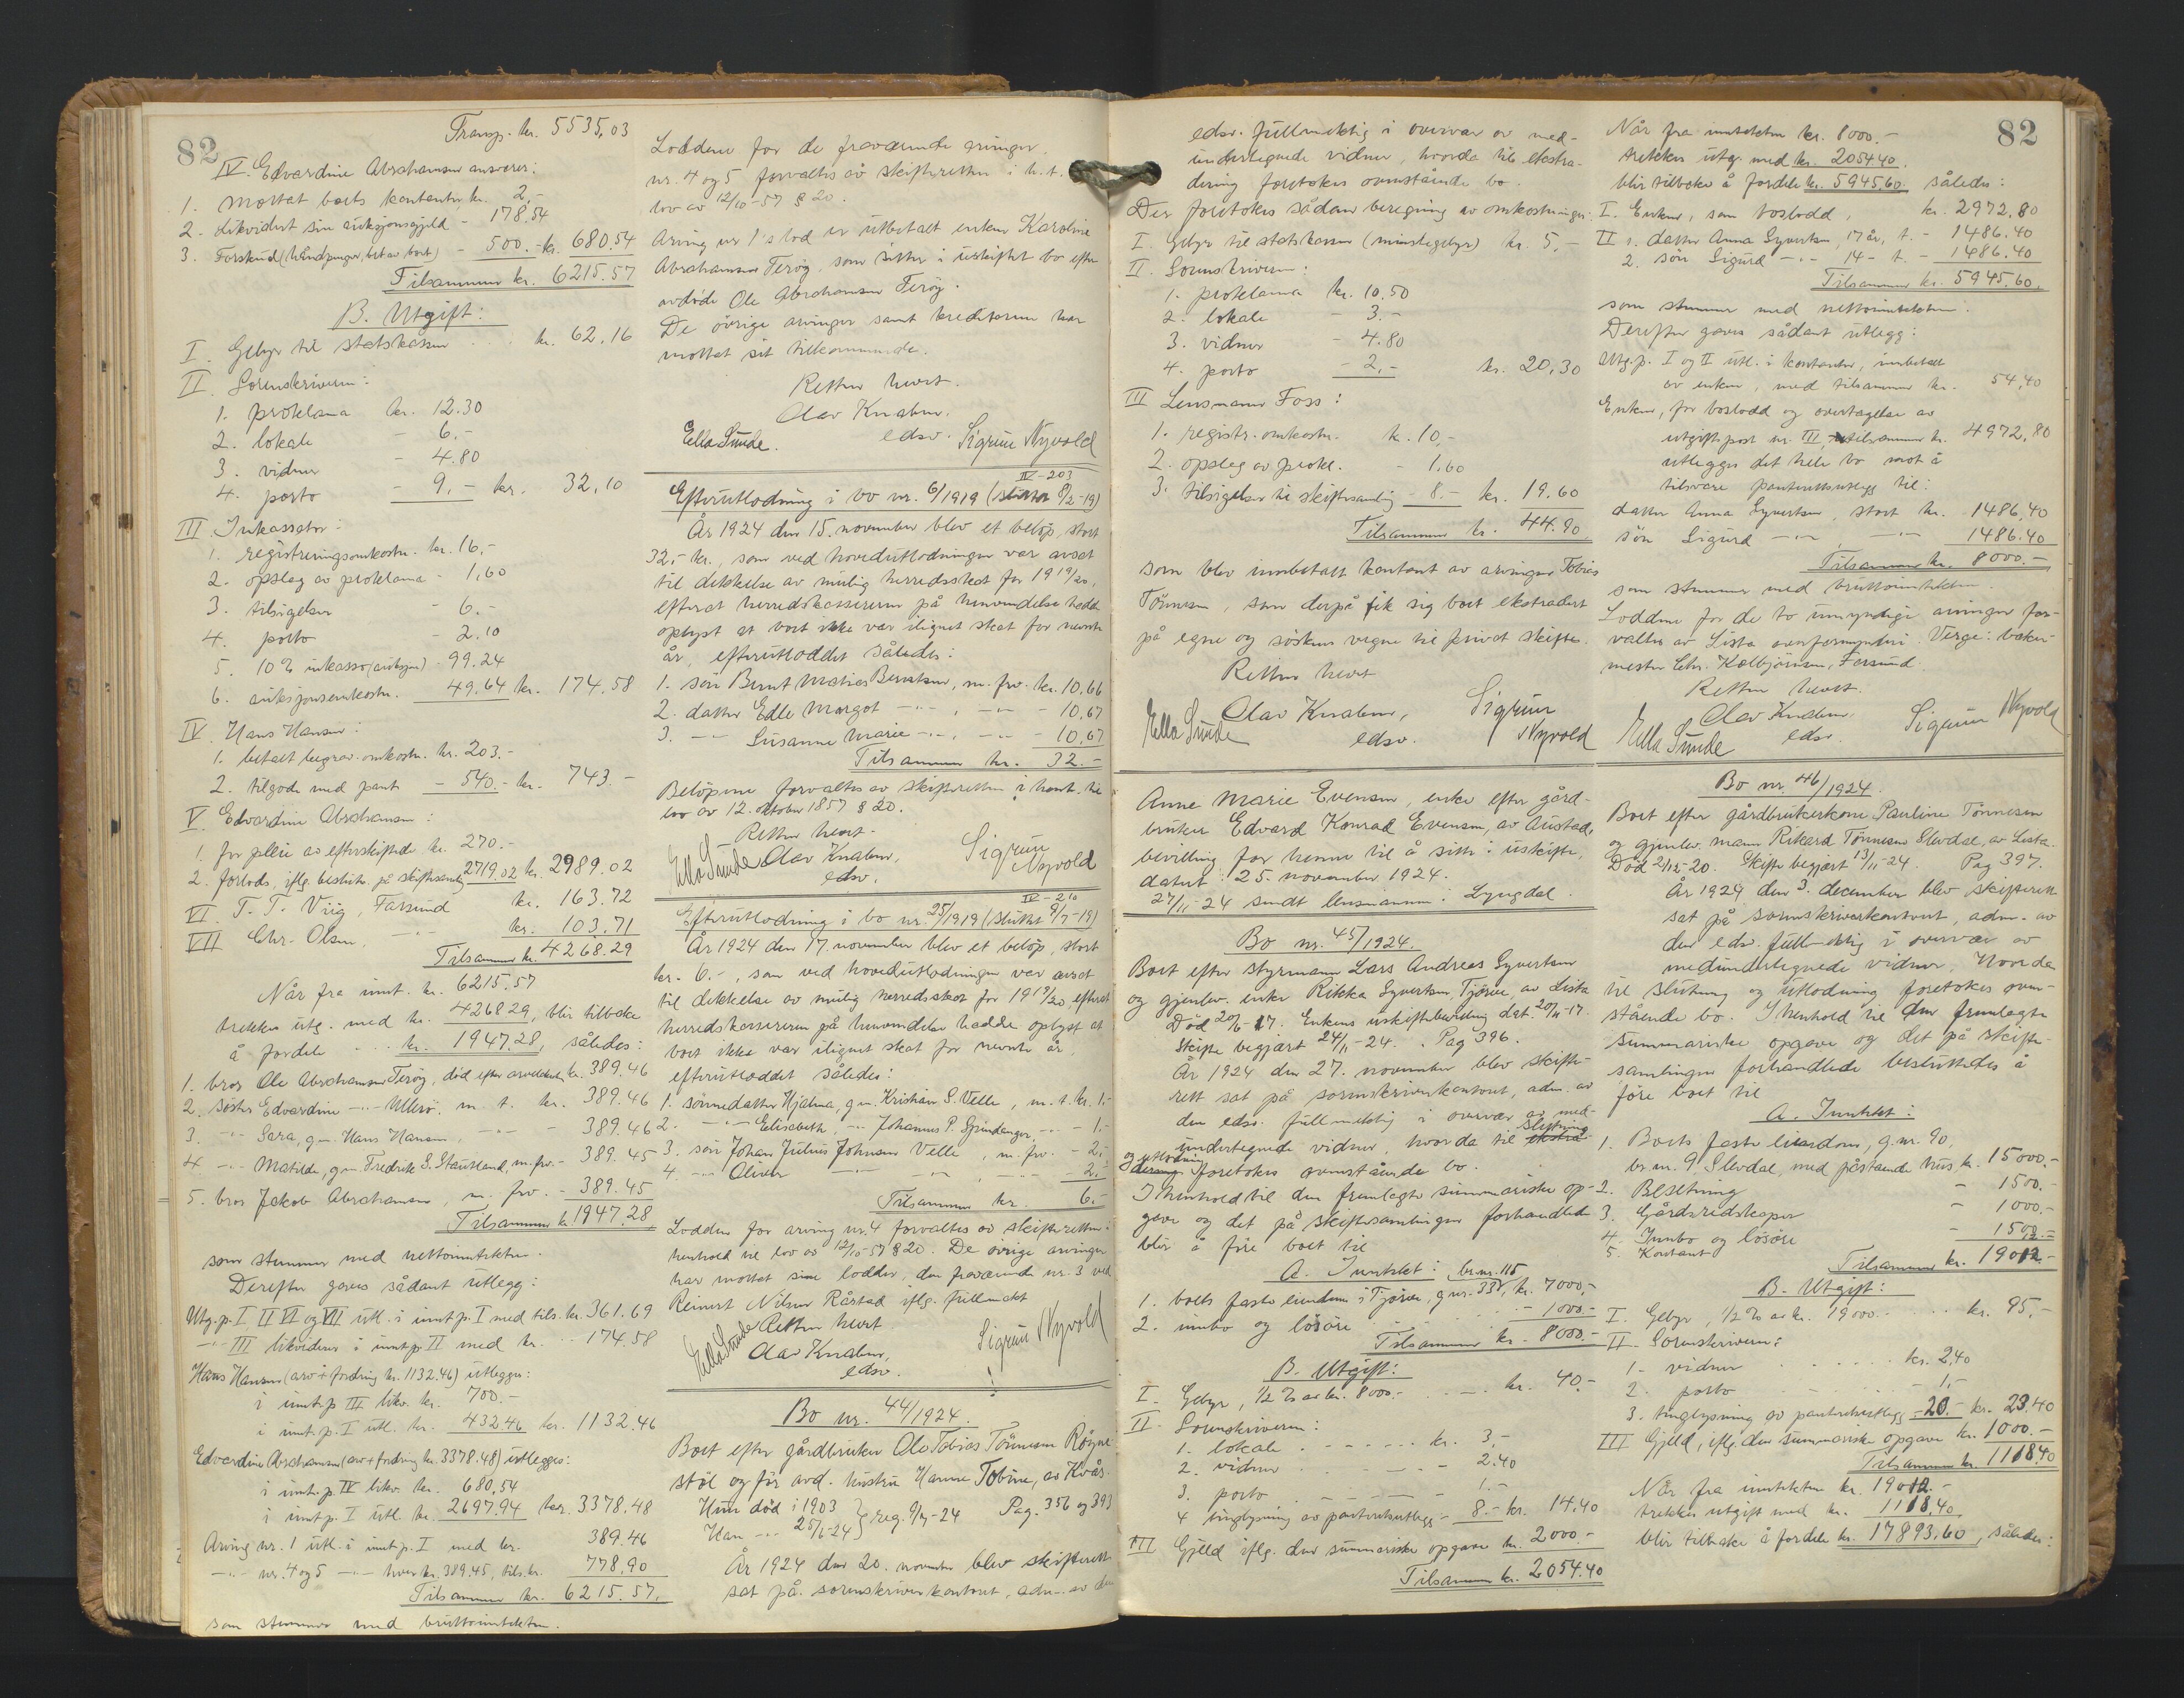 82
Transp. kr. 5535,03
IV. Edvardine Abrahamsen ansvarer:
1. mottat boets kontanter kr. 2,-
2. Likvidert sin auksjonsgjeld - 178.54
3. Forskud (håndpenger, bet av boet) - 500.- kr. 680.54
Tilsammen kr. 6215.57
B. Utgift:
I. Gebyr til statskassen kr. 62,16
II. Sorenskriveren:
1. proklama kr. 12.30
2. lokale - 6.-
3. vidner - 4.80
4. porto - 9.- kr. 32,10
III Inkassator:
1. registreringsomkostn. kr. 16,-
2. opslag av proklama - 1,60
3. tilsigelser - 6.-
4. porto - 2.10
5. 10 % inkasso (auksjon) - 99.24
6. auksjonsomkostn. 49,64 kr. 174,58
IV. Hans Hansen:
1. betalt begrav. omkostn. kr. 203.-
2. tilgode med pant - 540.- kr. 743.-
V. Edvardine Abrahamsen:
1. for pleie av efterskiftede kr. 270.-
2. forlods, iflg. beslutn. på skiftesamling 2719.02 kr. 2989.02
VI. T. T. Vrig Farsund kr. 163.72
VII Chr. Olsen, -"- kr. 103,71
Tilsammen kr. 4268.29
Når fra innt. kr. 6215.57
trekkes utg. med kr. 4268.29, blir tilbake
å fordele kr. 1947.28, således:
1. bror Ole Abrahamsen Terøy, død efter arveladeren, kr. 389.46
2. søster Edvardine -"- Ullerø, m. t. kr. 389.46
3. -"- Sara, g.m. Hans Hansen, -"- - 389.46
4. -"- Matilde, g.m. Fredrik S. Stautland, m. frv. - 389.45
5. bror Jakob Abrahamsen, m. frv. - 389.45
Tilsammen kr. 1947.28
som stemmer med nettoinntekten.
Derefter gaves sådant utlegg:
Utg.p. I II VI og VII utl. i innt.p. I med tils. kr. 361.69
-"- III likvideres i innt.p. II med kr. 174.58
Hans Hansen (arv + fordring kr. 1132.46) utlegges:
i innt.p. III likv. kr. 700.-
i innt.p. I utl. kr. 432.46 kr. 1132.46
Edvardine Abrahamsen (arv + fordring kr. 3378.48) utlegges:
i innt.p. IV likv. kr. 680,54
i innt.p. I utl. kr. 2697.94 kr. 3378.48
Arving nr. 1 utl. i innt.p. I med kr. 389.46
-"- nr. 4 og 5 -"- hver kr. 389.45, tils. kr. 778.90
Tilsammen kr. 6215.57,
som stemmer med bruttoinntekten.
Loddene for de fraværende arvinger
nr. 4 og 5 forvaltes av skifteretten i h. t.
lov av 12/10-57 § 20.
Arving nr 1's lod er utbetalt enken Karoline
Abrahamsen Terøy, som sitter i uskiftet bo efter
avdøde Ole Abrahamsen Terøy.
De øvrige arvinger samt kreditorene har
mottat sit tilkommende.
Retten hevet.
Olav Knaben,
edsv.
Ella Sunde. Sigrun Nyvold
IV-203
Efterutlodning i bo nr. 6/1919 (sluttet 8/2-19)
År 1924 den 15. november blev et beløp, stort
32,- kr., som ved hovedutlodningen var avsat
til dekkelse av mulig herredsskat for 1919/20,
efterat herredskassereren på henvendelse hadde
oplyst at boet ikke var ilignet skat for nevnte
år, efterutloddet således:
1. søn Bernt Matias Berntsen, m. frv. kr. 10,66
2. datter Edle Margot -"-, -"- - 10,67
3. -"- Susanne Marie -"-, -"- - 10,67
Tilsammen kr. 32.-
Beløpene forvaltes av skifteretten i henh. til
lov av 12. oktober 1857 § 20.
Retten hevet.
Ella Sunde Olav Knaben,
edsv.
Sigrun Nyvold
IV-210
Efterutlodning i bo nr. 25/1919 (sluttet 9/7-19)
År 1924 den 17. november blev et beløp, stort
kr. 6.-, som ved hovedutlodningen var avsat
til dekkelse av mulig herredsskat for 1919/20 efterat
herredskassereren på henvendelse hadde oplyst at
boet ikke var ilignet skat for nevnte år,
efterutloddet således:
1. sønnedatter Hjalma, g.m. Kristian S. Velle, m. t. kr. 1.-
2. -"- Elisabeth, -"- Johannes P. Spindanger, -"- - 1.-
3. søn Johan Julius Johnsen Velle, m. frv. - 2,-
4. -"- Oliver -"- -"- - 2,-
Tilsammen kr. 6.-
Lodden for arving nr. 4 forvaltes av skifteretten i
henhold til lov av 12/10-57 § 20. De øvrige arvinger
har mottat sine lodder, den fraværende nr. 3 ved
Reinert Nilsen Rårstad iflg. fullmakt
Retten hevet
Ella Sunde Olav Knaben,
edsv.
Sigrun Nyvold
Bo nr. 44/1924.
Boet efter gårdbruker Ole Tobias Tønnesen Røyne-
støl og før avd. hustru Hanne Tobine, av Kvås.
Hun død i 1903
Han -"- 25/6-24 } reg. 9/7-24 Pag. 356 og 393
År 1924 den 20. november blev skifterett
sat på sorenskriverkontoret, adm. av den
82
edsv. fullmektig i overvær av med-
undertegnede vidner, hvorda til ekstra-
dering foretokes ovenstående bo.
Der foretokes sådan beregning av omkostninger:
I. Gebyr til statskassen (minstegebyr) kr. 5,-
II. Sorenskriveren:
1. proklama kr. 10,50
2. lokale - 3.-
3. vidner - 4.80
4. porto - 2,- kr. 20,30
III Lensmann Foss:
1. registr. omkostn. kr. 10,-
2. opslag av prokl. - 1,60
3. tilsigelser til skiftesamling - 8.- kr. 19,60
Tilsammen kr. 44.90
som blev innbetalt kontant av arvingen Tobias
Tønnesen, som derpå fik sig boet ekstradert
på egne og søskens vegne til privat skifte.
Retten hevet
Olav Knaben,
edsv.
Ella Sunde Sigrun Nyvold
Anne Marie Evensen, enke efter gård-
bruker Edvard Konrad Evensen, av Austad,
bevilling for henne til å sitte i uskifte,
datert 25. november 1924.
27/11-24 sendt lensmannen i Lyngdal.
Bo nr. 45/1924.
Boet efter styrmann Lars Andreas Syvertsen
og gjenlev. enke Rikka Syvertsen, Tjørve, av Lista
Død 20/6-17. Enkens uskiftebevilling dat. 20/11-17.
Skifte begjært 24/11-24. Pag 396.
År 1924 den 27. november blev skifte-
rett sat på sorenskriverkontoret, adm. av
den edsv. fullmektig i overvær av med-
undertegnede vidner, hvorda til slutning
og utlodning foretokes ovenstående bo.
I henhold til den fremlagte summariske op-
gave og det på skiftesamlingen forhandlede
blir å føre boet til
A. Inntekt:
1. boets faste eiendom i Tjørve, g.nr. 33, br.nr. 115 kr. 7000,-
2. innbo og løsøre - 1000.-
Tilsammen kr. 8000.-
B. Utgift:
I. Gebyr, 1/2 % av kr. 8000.- kr. 40.-
II. Sorenskriveren:
1. lokale kr. 3,-
2. vidner - 2.40
3. porto 1.-
4. tinglysning av panteutlegg - 8.- kr. 14,40
III Gjeld iflg. den summariske opgave kr. 2000.-
Tilsammen kr. 2054.40
82
Når fra inntekten kr. 8000.-
trekkes utg. med kr. 2054.40
blir tilbake å fordele kr. 5945,60, således:
I. Enken, som boslodd, kr. 2972,80
II 1. datter Anna Syvertsen, 17 år, t. - 1486.40
2. søn Sigurd -"- 14 - t. - 1486.40
Tilsammen kr. 5945.60,
som stemmer med nettoinntekten.
Derefter gaves sådant utlegg:
Utg.p. I og II utl. i kontanter, innbetalt
av enken, med tilsammen kr. 54,40
Enken, for boslodd og overtagelse av
utgiftspost nr. III, tilsammen kr. 4972,80
utlegges det hele bo mot å
tilsvare panterettsutlegg til:
datter Anna Syvertsen, stort kr. 1486,40
søn Sigurd -"-, -"- 1486.40
Tilsammen kr. 8000.-
som stemmer med bruttoinntekten.
Loddene for de to umyndige arvinger for-
valtes av Lista overformynderi. Verge: baker-
mester Chr. Kolbjørnsen, Farsund.
Retten hevet.
Olav Knaben,
edsv.
Ella Sunde Sigrun Nyvold
Bo nr. 46/1924.
Boet efter gårdbrukerkone Pauline Tønnesen
og gjenlev. mann Rikard Tønnesen Slevdal, av Lista.
Død 2/12-20. Skifte begjært 13/11-24. Pag 397.
År 1924 den 3. december blev skifterett
sat på sorenskriverkontoret, adm. av
den edsv. fullmektig i overvær av
medundertegnede vidner, hvorda
til slutning og utlodning foretokes oven-
stående bo. I henhold til den fremlagte
summariske opgave og det på skifte-
samlingen forhandlede besluttedes å
føre boet til
A. Inntekt:
1. Boets faste eiendom, g.nr. 90,
br.nr. 9, Slevdal, med påstående hus, kr. 15000.-
2. Besetning - 1500.-
3. Gårdsredskaper - 1000.-
4. Innbo og løsøre - 1500.-
5. Kontant 12.-
Tilsammen kr. 19012.-
B. Utgift:
I. Gebyr, 1/2 % av kr. 19000.- kr. 95,-
II Sorenskriveren:
1. vidner kr. 2,40
2. porto - 1,-
3. tinglysning av panterettsutlegg - 20.- kr. 23.40
III Gjeld, iflg. den summariske opgave kr. 1000.-
Tilsammen kr. 1118.40
Når fra inntekten kr. 19012.-
trekkes utgift med kr. 1118,40
blir tilbake å fordele kr. 17893,60, således: